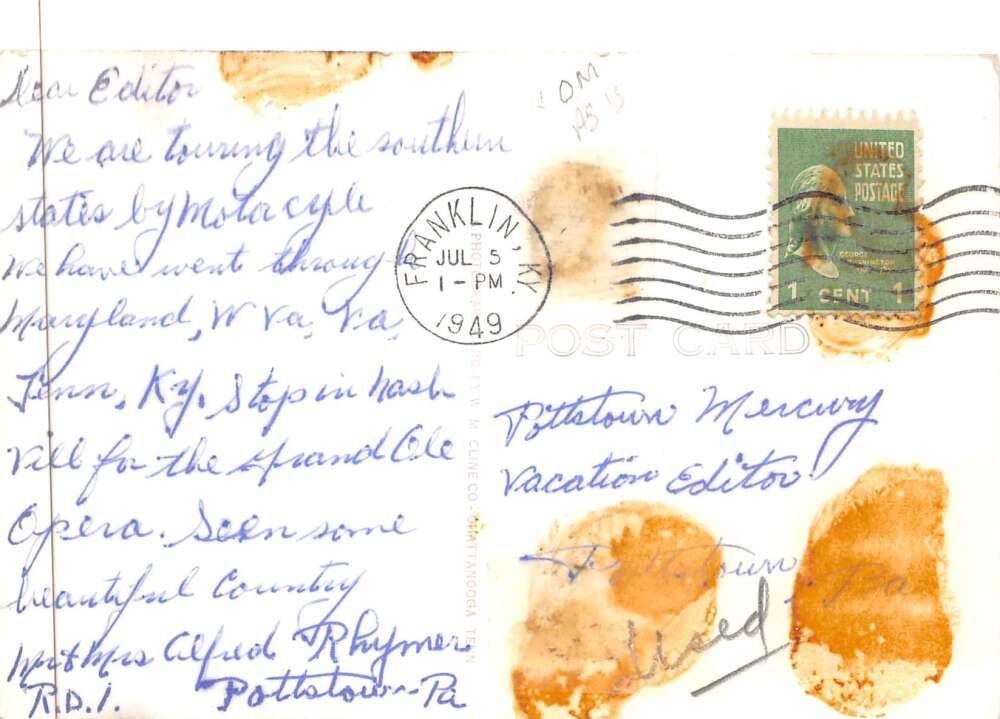 Dear Editor
We are touring the southern
states by Motorcycle
We have went through
Maryland, W Va, Va,
Tenn, Ky. Stop in Nash
Vill for the grand Ole
Opera. Seen some
beautiful Country
Mr & Mrs Alfred Rhymer
R.D.1. Pottstown Pa
FRANKLIN, KY.
JUL 5
1 - PM
1949
UNITED
STATES
POSTAGE
GEORGE
WASHINGTON
1 CENT 1
POST CARD
Pottstown Mercury
Vacation Editor
Pottstown, Pa
Used
W. M. CLINE CO. CHATTANOOGA TENN